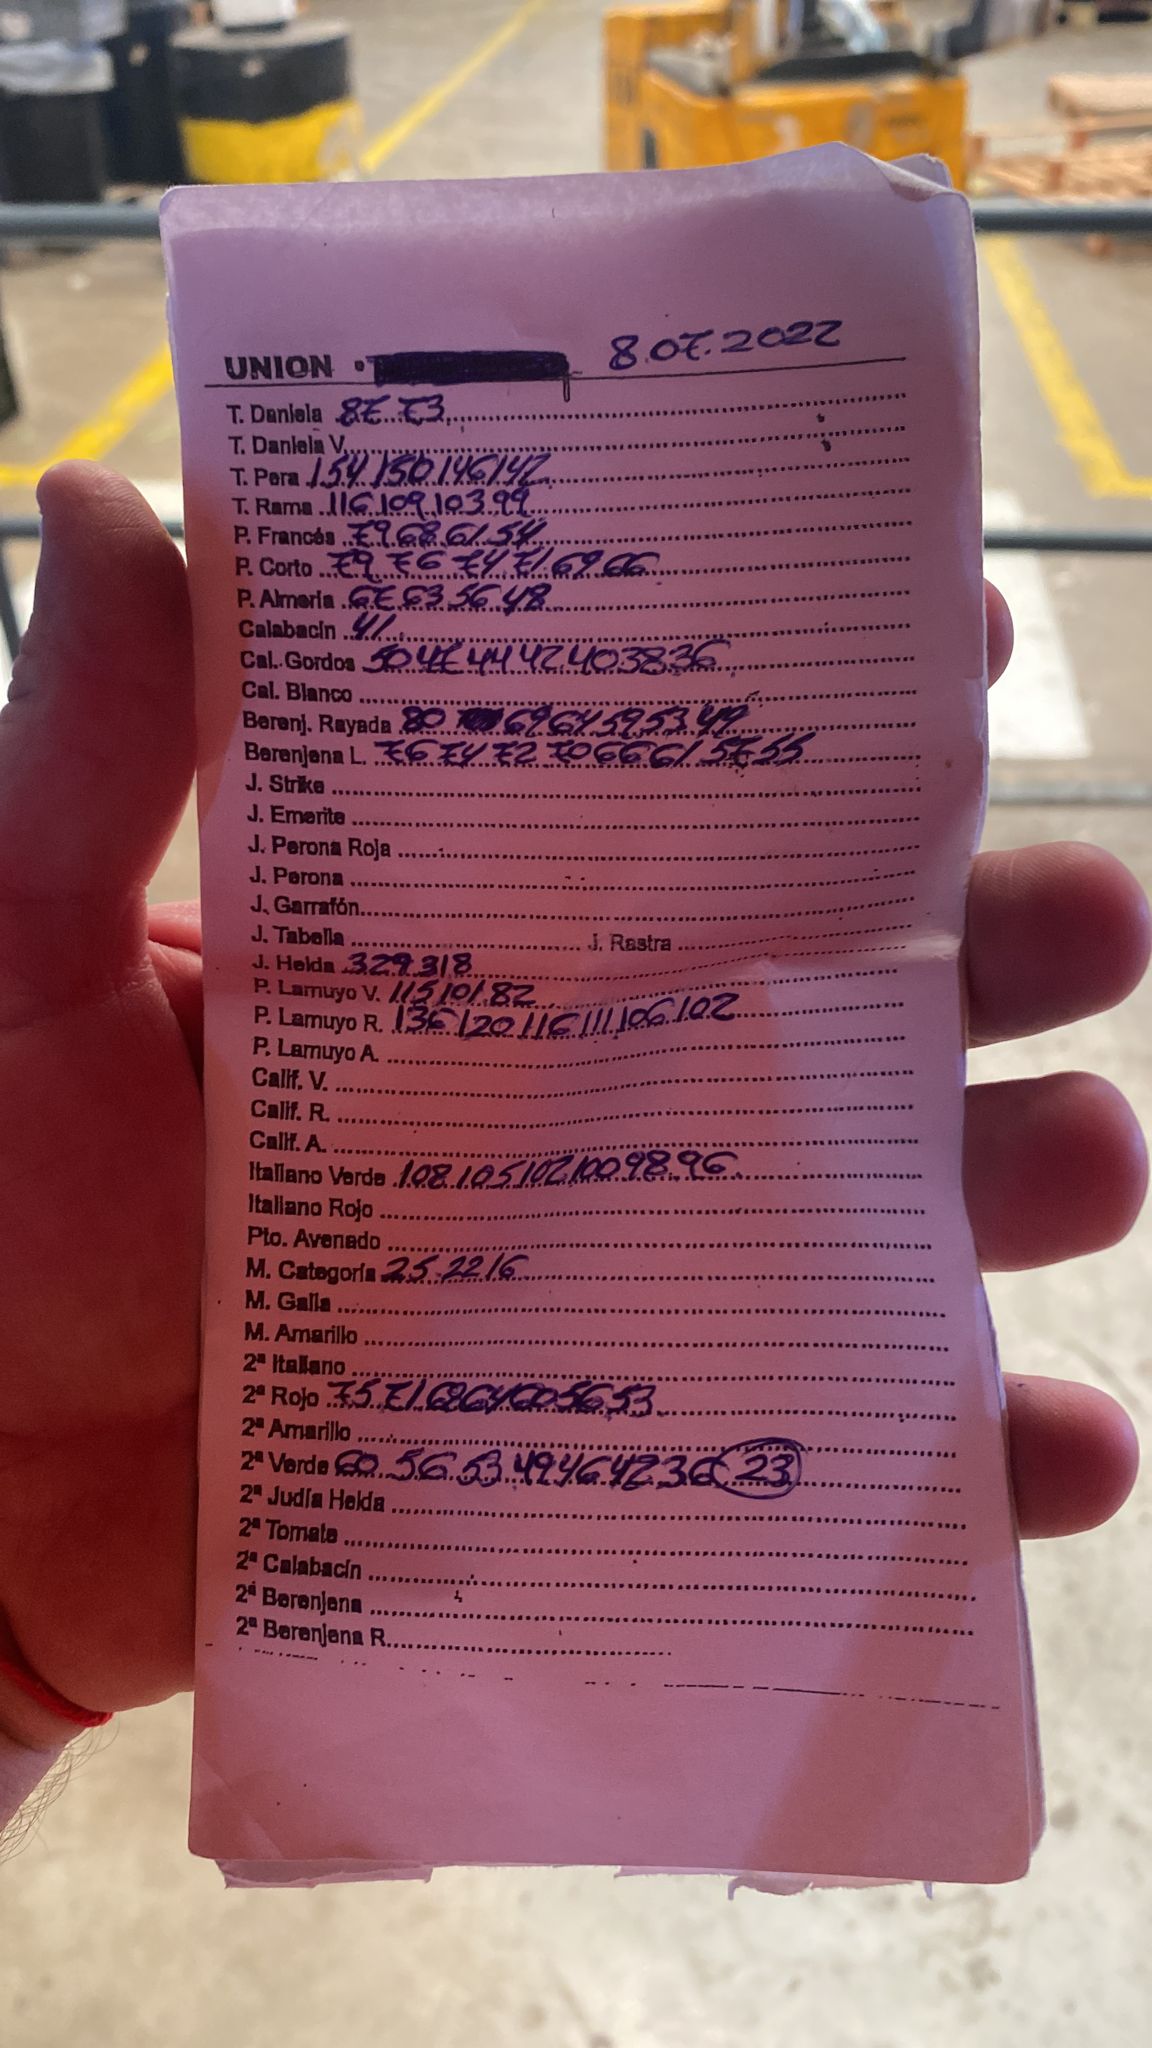 UNION · 8.07.2022
T. Daniela 87 73
T. Daniela V.
T. Pera 154 150 146 142
T. Rama 116 109 103 99
P. Francés 79 68 61 54
P. Corto 79 76 74 71 69 66
P. Almería 67 63 56 48
Calabacín 41
Cal. Gordos 50 47 44 42 40 38 36
Cal. Blanco
Berenj. Rayada 80 69 64 59 53 49
Berenjena L. 76 74 72 70 66 61 57 55
J. Strike
J. Emerite
J. Perona Roja
J. Perona
J. Garrafón
J. Tabella J. Rastra
J. Helda 329 318
P. Lamuyo V. 115 101 82
P. Lamuyo R. 136 120 116 111 106 102
P. Lamuyo A.
Calif. V.
Calif. R.
Calif. A.
Italiano Verde 108 105 102 100 98 96
Italiano Rojo
Pto. Avenado
M. Categoría 25 22 16
M. Galia
M. Amarillo
2ª Italiano
2ª Rojo 75 71 68 64 60 56 53
2ª Amarillo
2ª Verde 60 56 53 49 46 42 36 23
2ª Judía Helda
2ª Tomate
2ª Calabacín
2ª Berenjena
2ª Berenjena R.